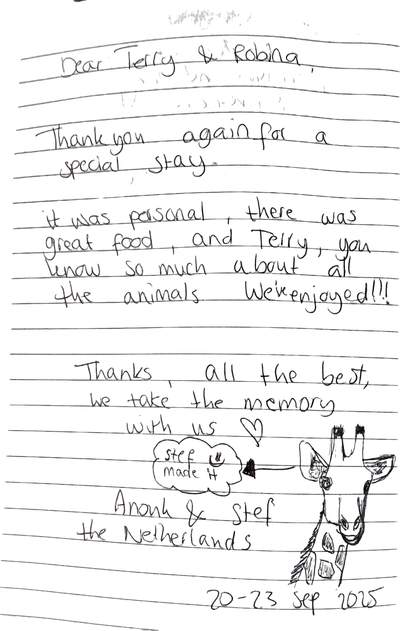 Dear Terry & Robina,
Thank you again for a
special stay.
it was personal, there was
great food, and Terry, you
know so much about all
the animals We've enjoyed!!!
Thanks, all the best,
We take the memory
with us ♡
stef
made it
Anouk & Stef
the Netherlands
20-23 Sep 2025